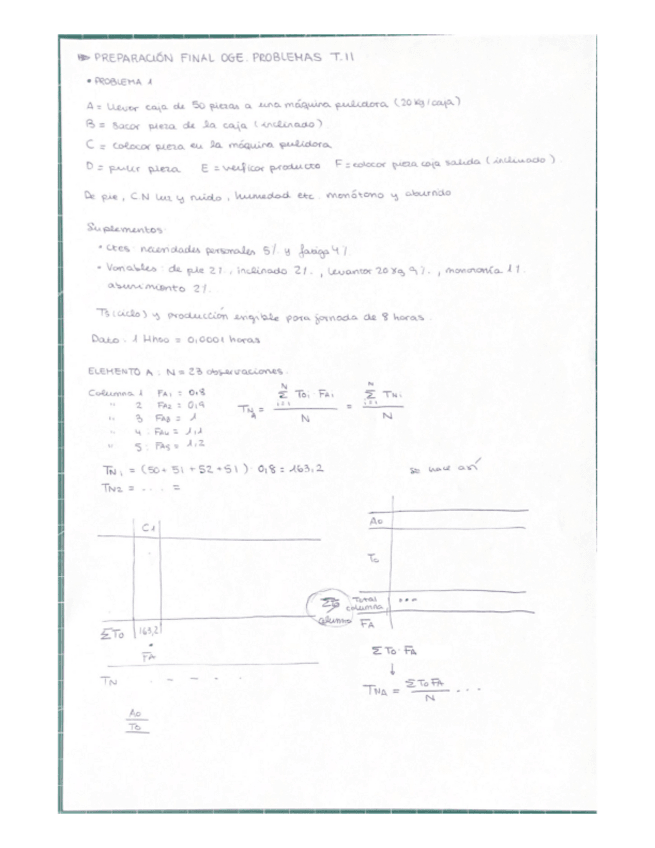 PREPARACIÓN FINAL OGE. PROBLEMAS T.11
• PROBLEMA 1
A = Llevar caja de 50 piezas a una máquina pulidora (20 kg/caja)
B = Sacar pieza de la caja (inclinado)
C = colocar pieza en la máquina pulidora
D = pulir pieza E = verificar producto F = colocar pieza caja salida (inclinado).
De pie, C.N luz y ruido, humedad etc. monótono y aburrido
Suplementos:
• Ctes: necesidades personales 5% y fatiga 4%
• Variables: de pie 2%, inclinado 2%, levantar 20 Kg 9%, monotonía 1%
aburrimiento 2%
Ts (ciclo) y producción exigible para jornada de 8 horas.
Dato: 1 Hhso = 0,0001 horas
ELEMENTO A: N = 23 observaciones.
Columna 1 FA1 = 0,8
" 2 FA2 = 0,9
" 3 FA3 = 1
" 4: FA4 = 1,1
" 5: FA5 = 1,2
TNA = Σ i=1 N TOi FAi / N = Σ i=1 N TNi / N
TN1 = (50 + 51 + 52 + 51) · 0,8 = 163,2
se hace así
TN2 = . . . . =
C1
Ao
To
Total columna
...
FA
ΣTO 163,2
•
FA
TN . - - . .
ΣTO·FA
↓
TNA = ΣTOFA / N ...
Ao
To